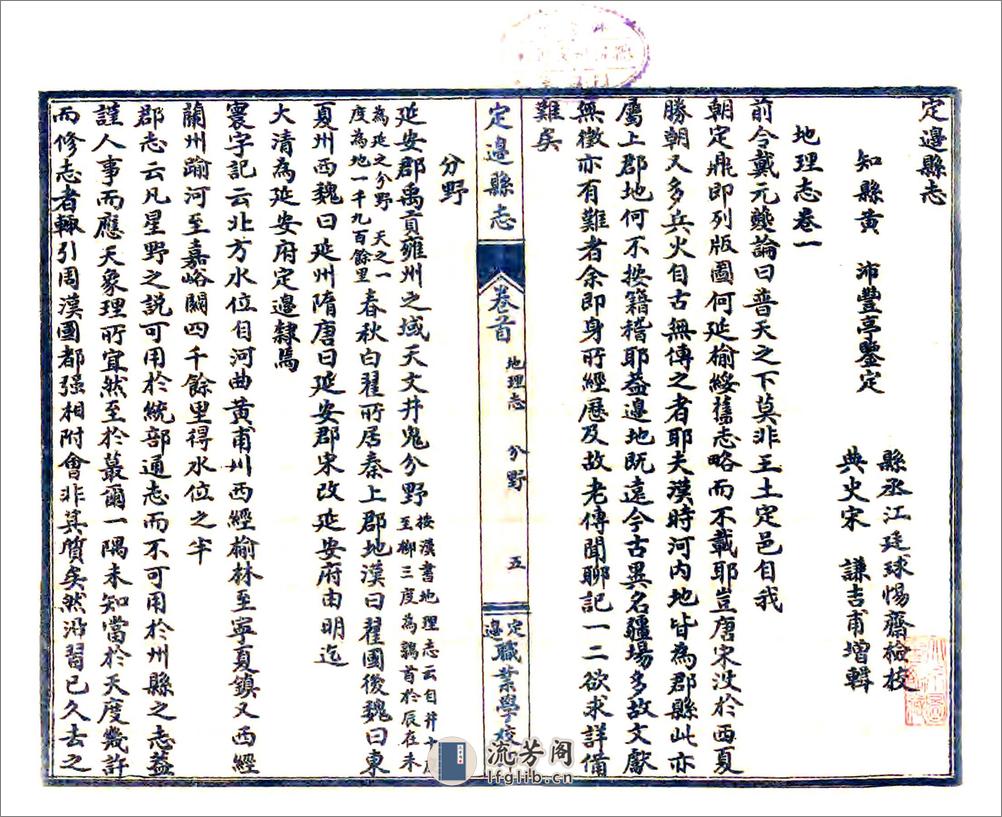 定邊縣志
知縣黃　沛豐亭鑒定
縣丞江廷球惕齋檢校
典史宋　謙吉甫增輯
地理志卷一
前令戴元夔論曰普天之下莫非王土定邑自我
朝定鼎即列版圖何延榆綏舊志略而不載耶豈唐宋没於西夏
勝朝又多兵火自古無傳之者耶夫漢時河内地皆為郡縣此亦
屬上郡地何不按籍稽耶葢邊地既遠今古異名疆場多故文獻
無徵亦有難者余即身所經歷及故老傳聞聊記一二欲求詳備
難矣
定邊縣志
卷首
地理志
分野
五
定邊職業學校
分野
延安郡禹貢雍州之域天文井鬼分野按漢書地理志云自井十度
至柳三度為鶉首於辰在未
為延之分野天之一
度為地一千九百餘里春秋白翟所居秦上郡地漢曰翟國後魏曰東
夏州西魏曰延州隋唐曰延安郡宋改延安府由明迄
大清為延安府定邊隸焉
寰宇記云北方水位自河曲黃甫川西經榆林至寧夏鎮又西經
蘭州踰河至嘉峪關四千餘里得水位之半
郡志云凡星野之説可用於統部通志而不可用於州縣之志葢
謹人事而應天象理所宜然至於蕞爾一隅未知當於天度幾許
而修志者輒引周漢國都强相附會非其質矣然沿習已久去之
流芳阁
lfglib.cn